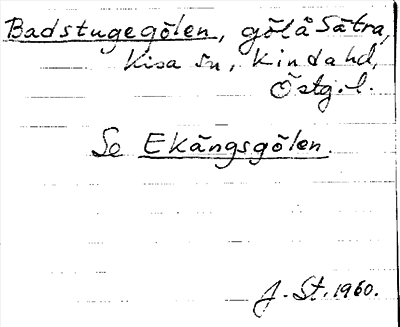 Badstugegölen, göl å Sätra,
Kisa sn, Kinda hd,
Östg.l.
Se Ekängsgölen.
J. St. 1960.